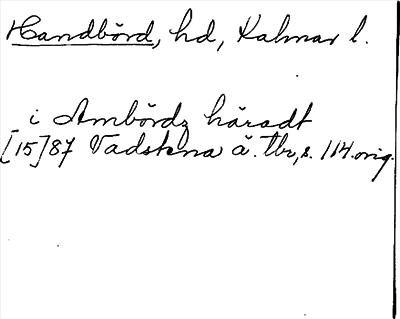 Handbörd, hd, Kalmar l.
i Ambördz häradt
[15]87 Vadstena ä. tbr, s. 114. orig.